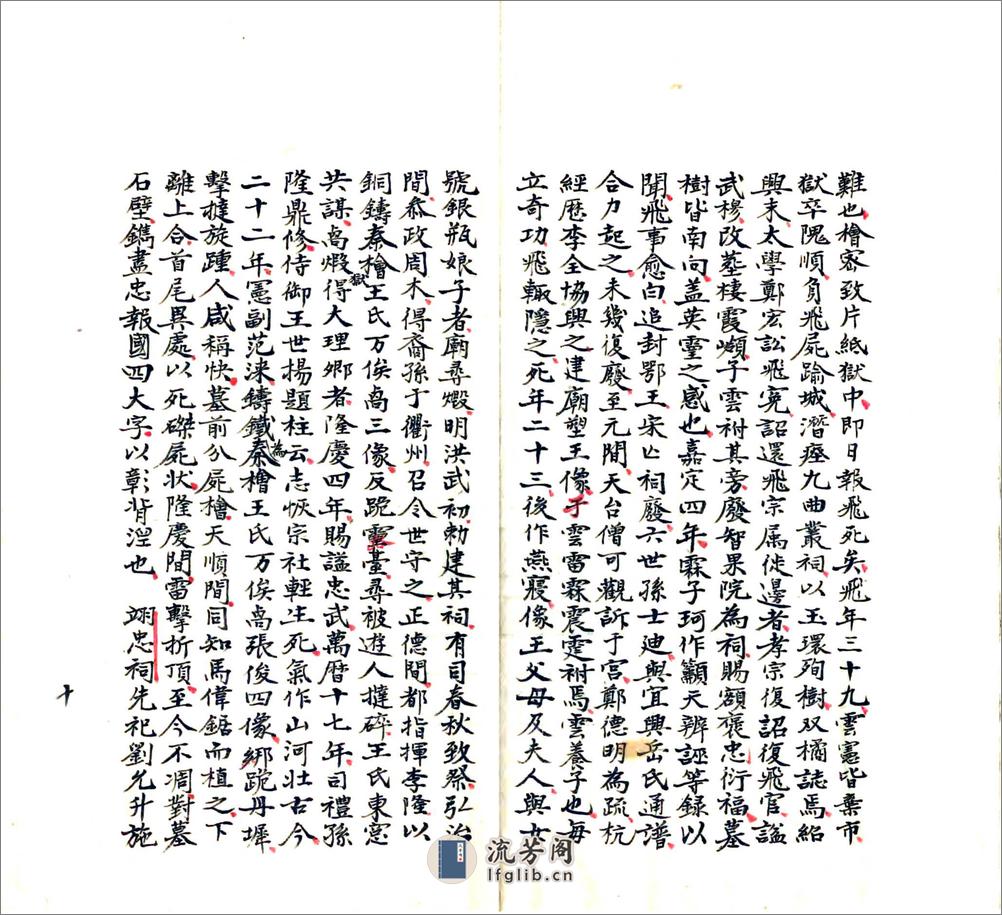 難也檜密致片紙獄中即日報飛死矣飛年三十九雲憲皆棄市
獄卒隗順負飛屍踰城潛瘞九曲叢祠以玉環殉樹双橘誌焉紹
興末太學鄭宏訟飛寃詔還飛宗属徙邊者孝宗復詔復飛官謚
武穆改塟棲霞嶺子雲祔其旁廢智果院為祠賜額褒忠衍福墓
樹皆南向蓋英靈之感也嘉定四年霖子珂作籲天辨誣等録以
聞飛事愈白追封鄂王宋亾祠廢六世孫士廸與宜興岳氏通譜
合力起之未幾復廢至元間天台僧可觀訴于官鄭德明為疏杭
經歴李全協興之建廟塑王像子雲雷霖震霆祔焉雲養子也每
立奇功飛輙隱之死年二十三後作燕寢像王父母及夫人與女
號銀瓶娘子者廟尋燬明洪武初勅建其祠有司春秋致祭弘治
間叅政周木得裔孫于衢州召令世守之正德間都指揮李隆以
銅鑄秦檜王氏万俟卨三像反跪靈臺尋被遊人撻碎王氏東窓
共謀卨煆獄得大理卿者隆慶四年賜謚忠武萬曆十七年司禮孫
隆鼎修侍御王世揚題柱云志恢宗社輕生死氣作山河壯古今
二十二年憲副范淶鑄鐵為秦檜王氏万俟卨張俊四像綁跪丹墀
擊撻旋踵人咸稱快墓前分屍檜天順間同知馬偉鋸而植之下
離上合首尾異處以死磔屍状隆慶間雷擊折頂至今不凋對墓
石壁鐫盡忠報國四大字以彰背涅也 翊忠祠先祀劉允升施
十
流芳阁
lfglib.cn